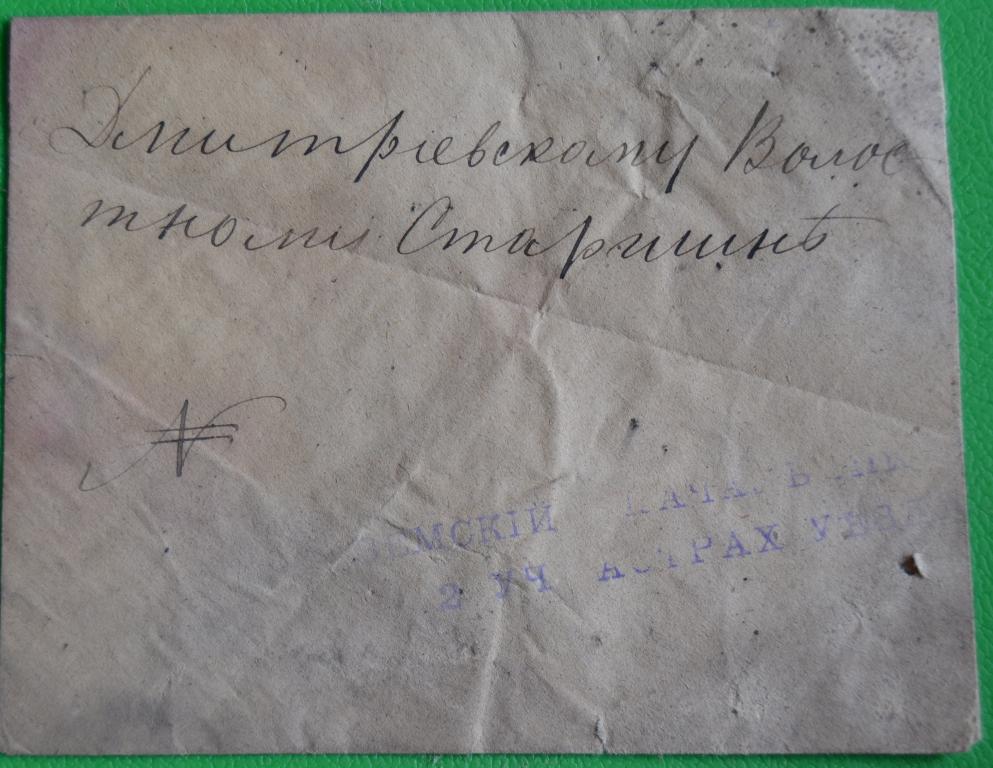 Дмитріевскому Волос
тному Старшинѣ
№
ЗЕМСКІЙ НАЧАЛЬНИК
2 УЧ АСТРАХ УѢЗД